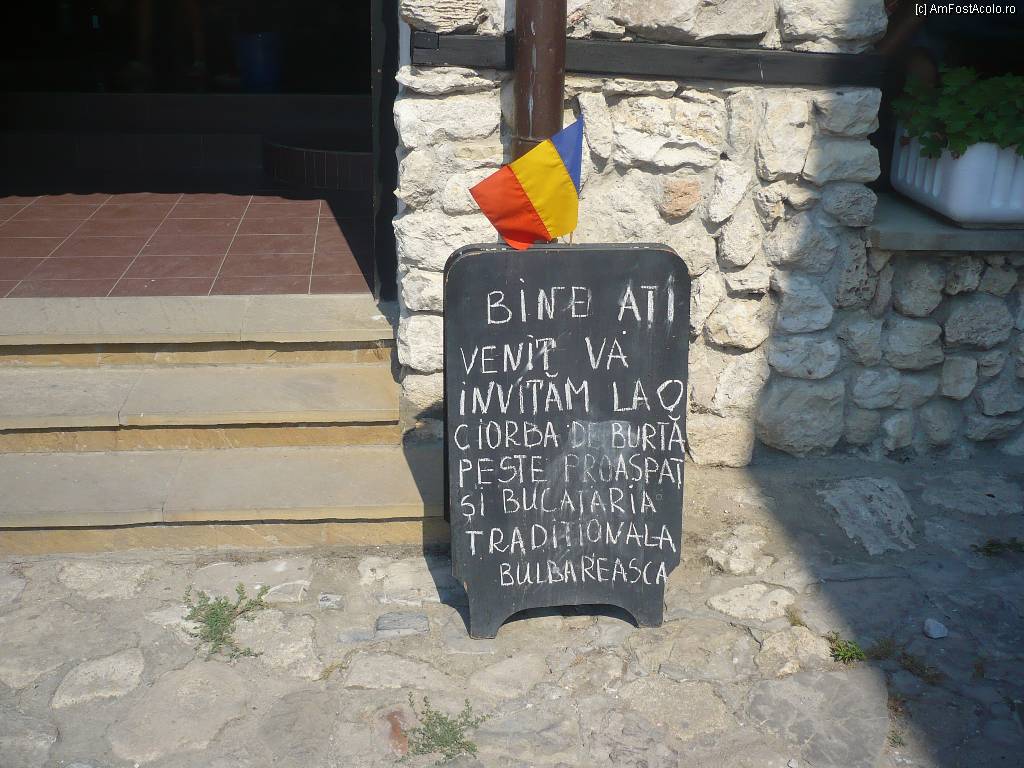 (c) AmFostAcolo.ro
BINE AŢI
VENIŢ VĂ
INVITĂM LA O
CIORBA DE BURTĂ
PESTE PROASPAȚ
ŞI BUCATARIA
TRADIȚIONALA
BULGAREASCA